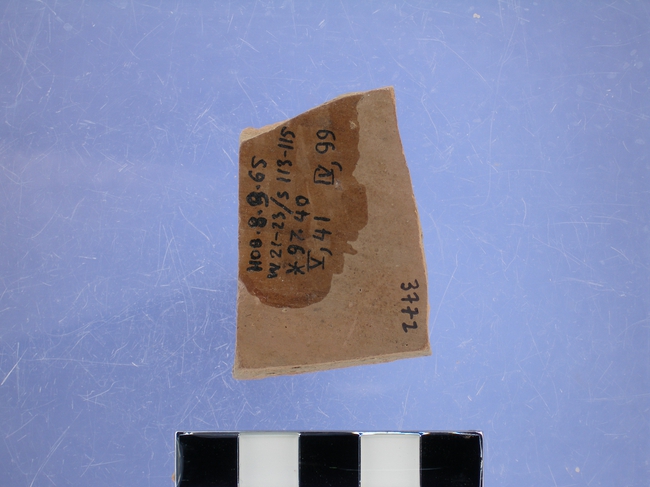 HOB. 8.9.65
W 21-23/S 113-115
*97.40
V, 41 IV, 99
3772